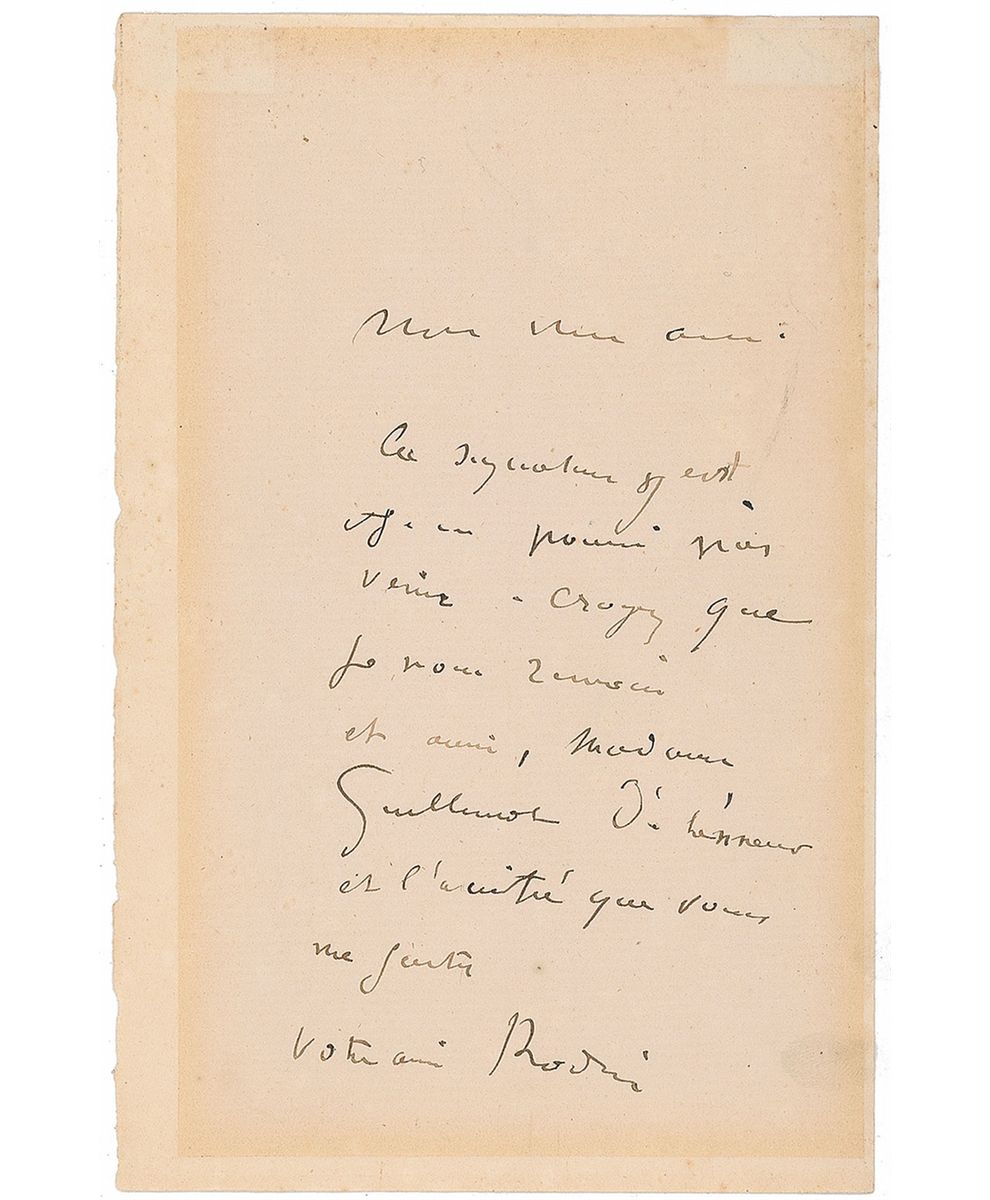 Mon cher ami
La signature y est
et je ne pourrai pas
venir. Croyez que
je vous remercie
et aussi, Madame
Guillemot de l'honneur
et l'amitié que vous
me faites
Votre ami Rodin